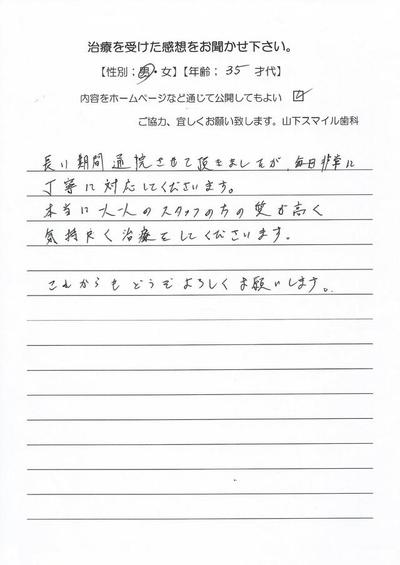 治療を受けた感想をお聞かせ下さい。
【性別:男・女】【年齢:35才代】
内容をホームページなど通じて公開してもよい ☑
ご協力、宜しくお願い致します。山下スマイル歯科
長い期間通院させて頂きましたが、毎日非常に
丁寧に対応してくださいます。
本当に一人一人のスタッフの方の質が高く
気持良く治療をしてくださいます。
これからもどうぞよろしくお願いします。